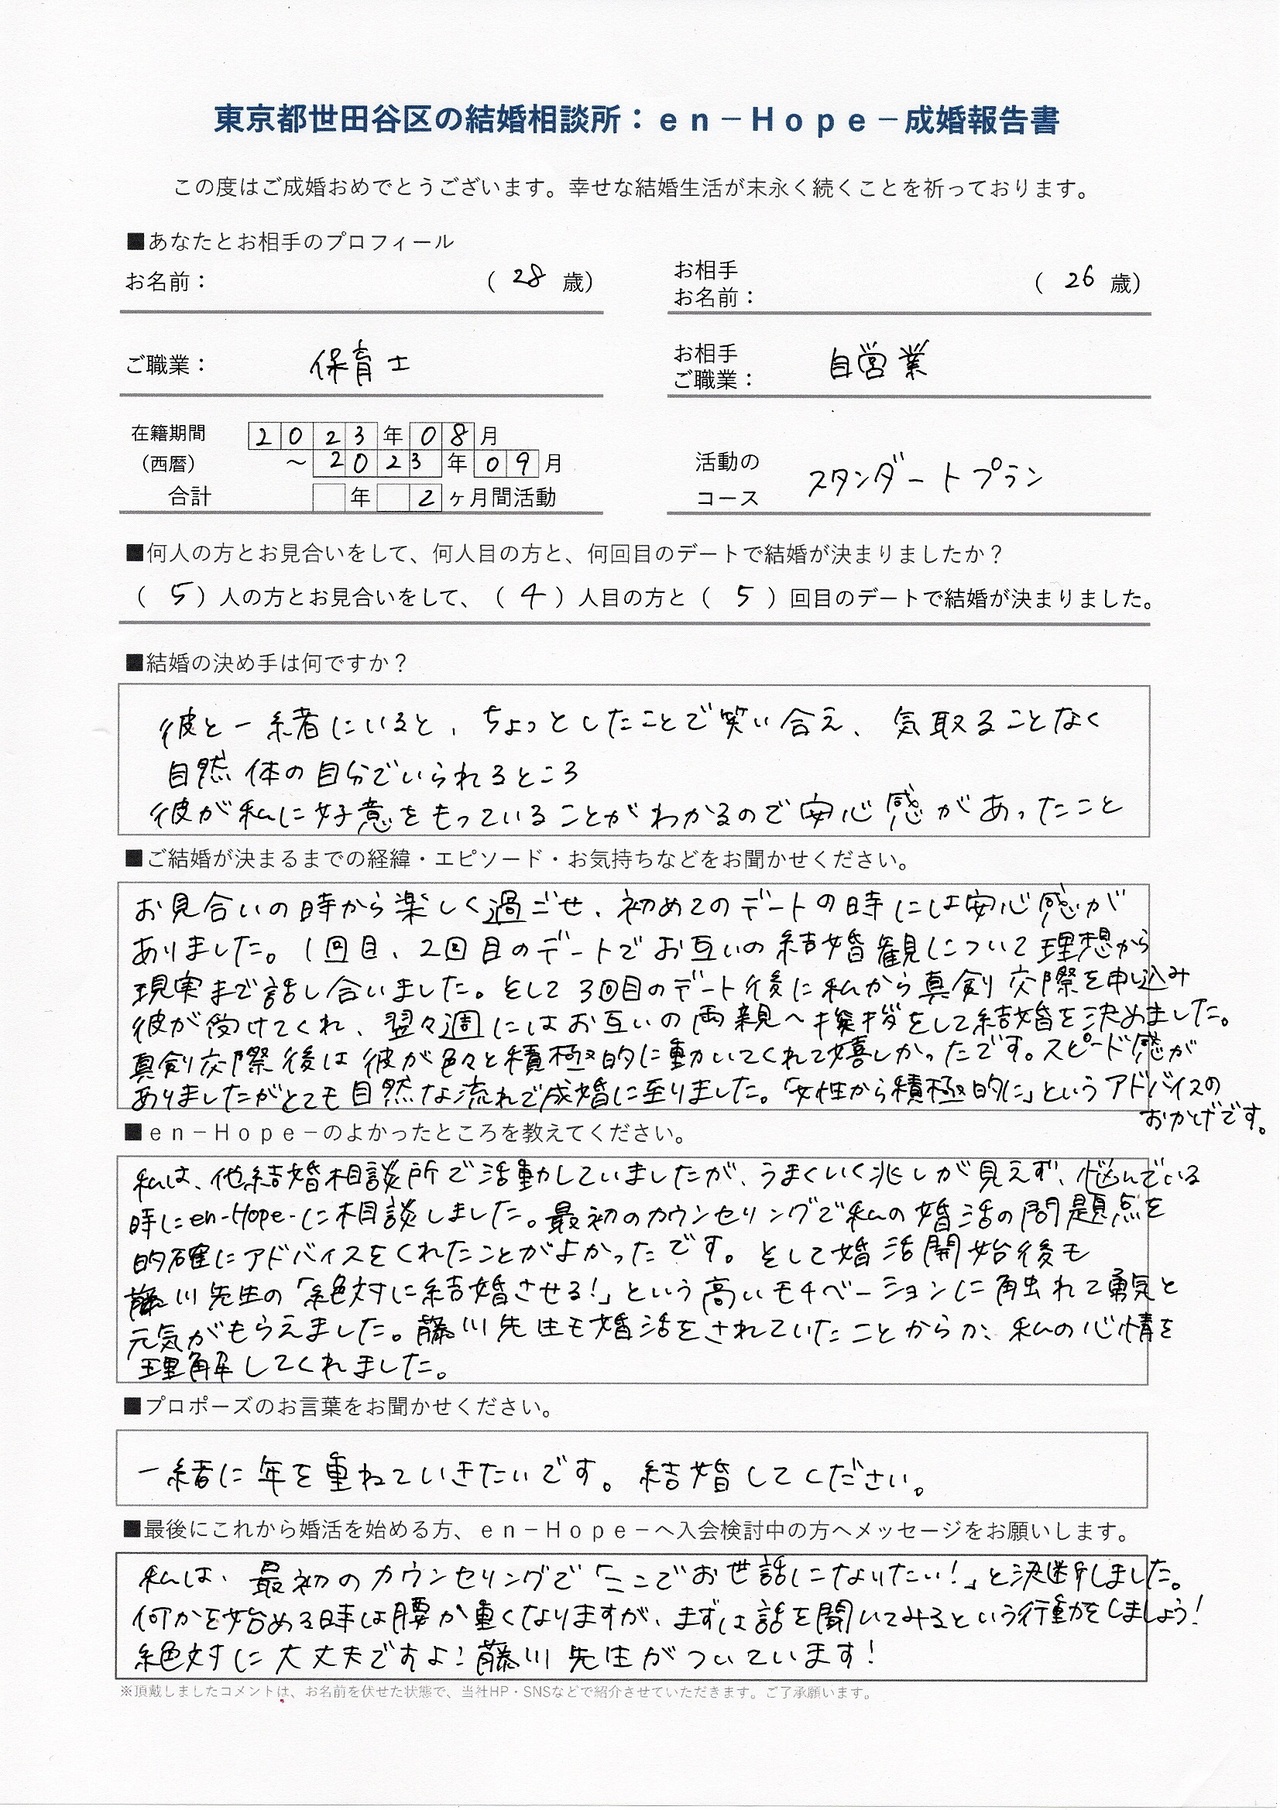 東京都世田谷区の結婚相談所：ｅｎ－Ｈｏｐｅ－成婚報告書
この度はご成婚おめでとうございます。幸せな結婚生活が末永く続くことを祈っております。
■あなたとお相手のプロフィール
お名前： （ 28 歳） お相手お名前： （ 26 歳）
ご職業： 保育士 お相手ご職業： 自営業
在籍期間 2023年08月
（西暦） ～2023年09月
合計 年 2ヶ月間活動
活動の
コース スタンダートプラン
■何人の方とお見合いをして、何人目の方と、何回目のデートで結婚が決まりましたか？
（ 5 ）人の方とお見合いをして、（ 4 ）人目の方と（ 5 ）回目のデートで結婚が決まりました。
■結婚の決め手は何ですか？
彼と一緒にいると、ちょっとしたことで笑い合え、気取ることなく
自然体の自分でいられるところ
彼が私に好意をもっていることがわかるので安心感があったこと
■ご結婚が決まるまでの経緯・エピソード・お気持ちなどをお聞かせください。
お見合いの時から楽しく過ごせ、初めてのデートの時には安心感が
ありました。1回目、2回目のデートでお互いの結婚観について理想から
現実まで話し合いました。そして3回目のデート後に私から真剣交際を申し込み
彼が受けてくれ、翌々週にはお互いの両親へ挨拶をして結婚を決めました。
真剣交際後は彼が色々と積極的に動いてくれて嬉しかったです。スピード感が
ありましたがとても自然な流れで成婚に至りました。「女性から積極的に」というアドバイスの
おかげです。
■ｅｎ－Ｈｏｐｅ－のよかったところを教えてください。
私は、他結婚相談所で活動していましたが、うまくいく兆しが見えず、悩んでいる
時にen-Hope-に相談しました。最初のカウンセリングで私の婚活の問題点を
的確にアドバイスをくれたことがよかったです。そして婚活開始後も
藤川先生の「絶対に結婚させる！」という高いモチベーションに触れて勇気と
元気がもらえました。藤川先生も婚活をされていたことからか、私の心情を
理解してくれました。
■プロポーズのお言葉をお聞かせください。
一緒に年を重ねていきたいです。結婚してください。
■最後にこれから婚活を始める方、ｅｎ－Ｈｏｐｅ－へ入会検討中の方へメッセージをお願いします。
私は、最初のカウンセリングで「ここでお世話になりたい！」と決断しました。
何かを始める時は腰が重くなりますが、まずは話を聞いてみるという行動をしましょう！
絶対に大丈夫ですよ！藤川先生がついています！
※頂戴しましたコメントは、お名前を伏せた状態で、当社HP・SNSなどで紹介させていただきます。ご了承願います。